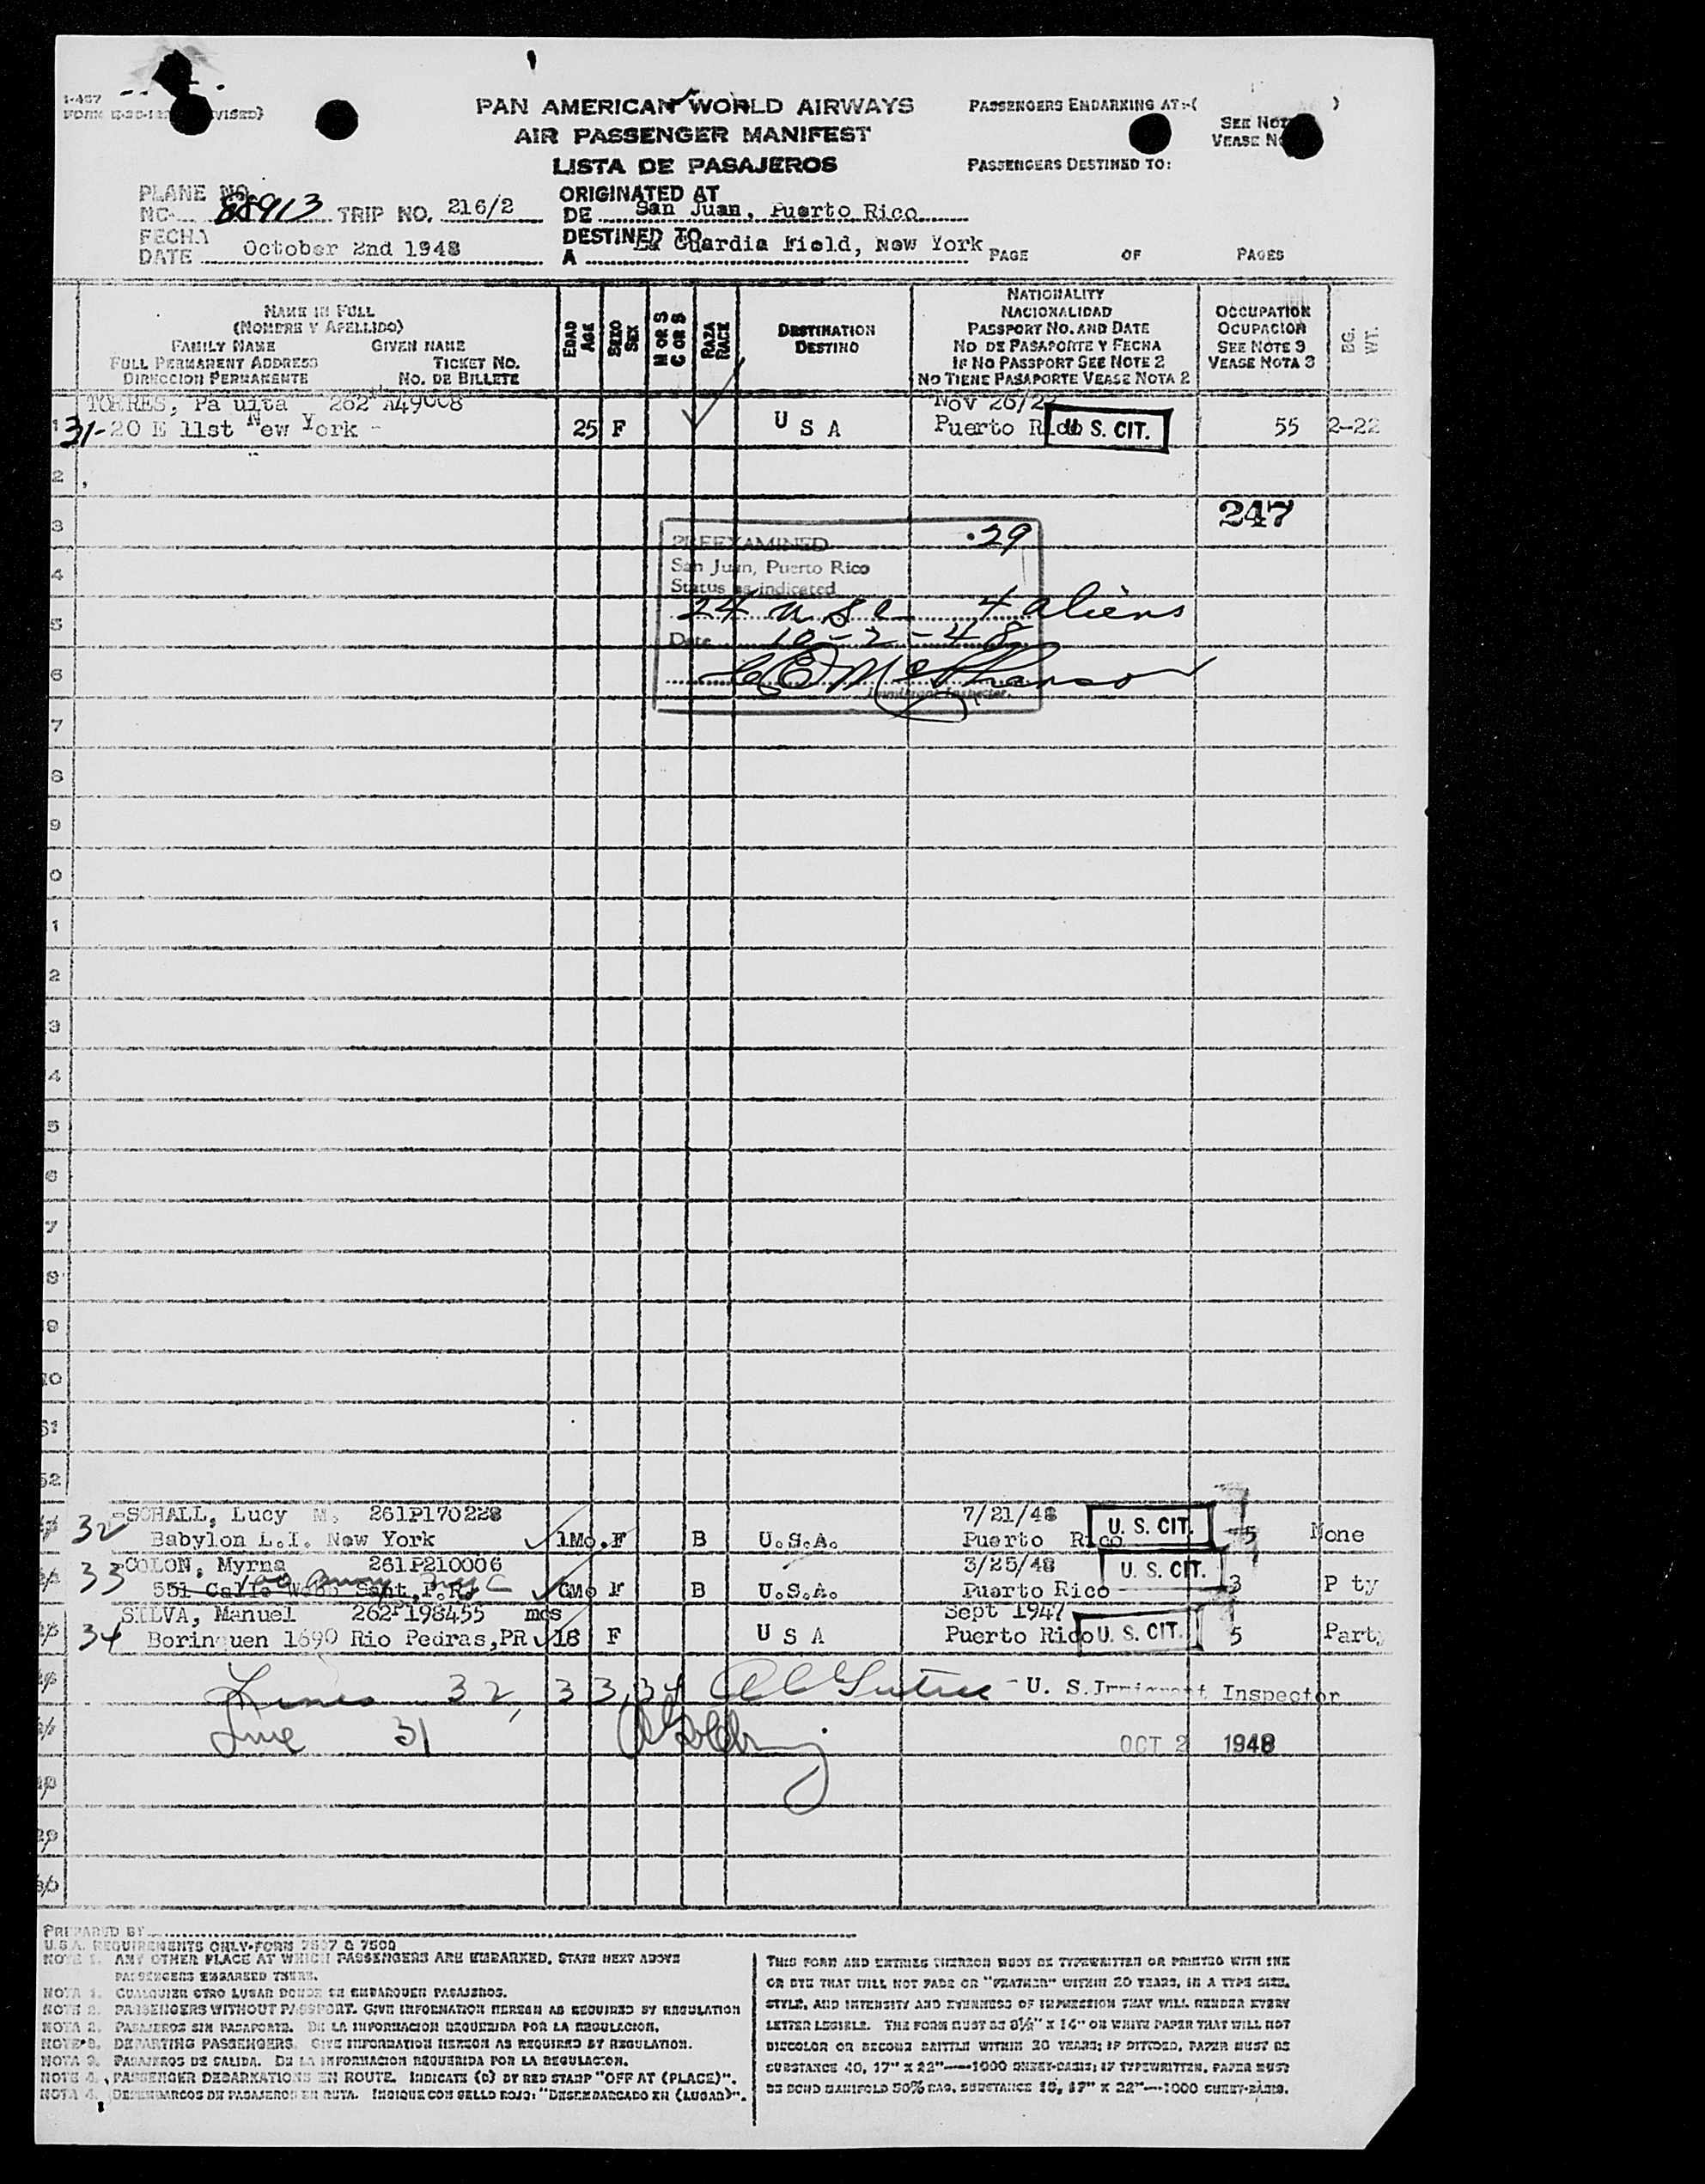 1-467
PAN AMERICAN WORLD AIRWAYS
AIR PASSENGER MANIFEST
LISTA DE PASAJEROS
PASSENGERS EMBARKING AT:-( )
SEE NOTE
VEASE NO
PASSENGERS DESTINED TO:
PLANE NO.
NC- 88913 TRIP NO. 216/2
FECHA
DATE October 2nd 1948
ORIGINATED AT
DE San Juan, Puerto Rico
DESTINED TO
A La Guardia Field, New York
PAGE OF PAGES
NAME IN FULL
(NOMBRE Y APELLIDO)
FAMILY NAME GIVEN NAME
FULL PERMANENT ADDRESS TICKET NO.
DIRECCION PERMANENTE NO. DE BILLETE
EDAD
AGE
SEXO
SEX
M OR S
C OR S
RAZA
RACE
DESTINATION
DESTINO
NATIONALITY
NACIONALIDAD
PASSPORT NO. AND DATE
NO DE PASAPORTE Y FECHA
IF NO PASSPORT SEE NOTE 2
NO TIENE PASAPORTE VEASE NOTA 2
OCCUPATION
OCUPACION
SEE NOTE 3
VEASE NOTA 3
BG.
WT.
TORRES, Pa uita 262 A49008 Nov 26/22
1 31-20 E 11st New York - 25 F U S A Puerto Rico U. S. CIT. 55 2-22
2
247
3
PREEXAMINED .29
4
San Juan, Puerto Rico
Status as indicated
5
24 u s c 4 aliens
Date 10-2-48
6
Immigrant Inspector.
7
8
9
0
1
2
3
4
5
6
7
8
9
10
51
52
32 SCHALL, Lucy M. 261P170228 7/21/48 U. S. CIT.
Babylon L.I. New York 1Mo. F B U.S.A. Puerto Rico 5 None
33 COLON, Myrna 261P210006 3/25/48 U. S. CIT.
551 Calle Sant, P.R. 6Mo F B U.S.A. Puerto Rico 3 P ty
SILVA, Manuel 262P198455 mos Sept 1947
34 Borinquen 1690 Rio Pedras,PR 18 F U S A Puerto Rico U. S. CIT. 5 Party
Lines 32, 33,34 - U. S. Immigrant Inspector
Line 31 OCT 2 1948
PREPARED BY
U.S.A. REQUIREMENTS ONLY-FORM 7507 & 7509
NOTE 1. ANY OTHER PLACE AT WHICH PASSENGERS ARE EMBARKED, STATE NEXT ABOVE
PASSENGERS EMBARKED THERE.
NOTA 1. CUALQUIER OTRO LUGAR DONDE SE EMBARQUEN PASAJEROS.
NOTE 2. PASSENGERS WITHOUT PASSPORT. GIVE INFORMATION HEREON AS REQUIRED BY REGULATION
NOTA 2. PASAJEROS SIN PASAPORTE. DE LA INFORMACION REQUERIDA POR LA REGULACION.
NOTE 3. DEPARTING PASSENGERS. GIVE INFORMATION HEREON AS REQUIRED BY REGULATION.
NOTA 3. PASAJEROS DE SALIDA. DE LA INFORMACION REQUERIDA POR LA REGULACION.
NOTE 4. PASSENGER DEBARKATIONS EN ROUTE. INDICATE (D) BY RED STAMP "OFF AT (PLACE)".
NOTA 4. DESEMBARCOS DE PASAJEROS EN RUTA. INDIQUE CON SELLO ROJO: "DESEMBARCADO EN (LUGAR)".
THIS FORM AND ENTRIES THEREON MUST BE TYPEWRITTEN OR PRINTED WITH INK
OR DYE THAT WILL NOT FADE OR "FEATHER" WITHIN 20 YEARS, IN A TYPE SIZE,
STYLE, AND INTENSITY AND EVENNESS OF IMPRESSION THAT WILL RENDER EVERY
LETTER LEGIBLE. THE FORM MUST BE 8½" X 14" ON WHITE PAPER THAT WILL NOT
DISCOLOR OR BECOME BRITTLE WITHIN 20 YEARS; IF DITTOED, PAPER MUST BE
SUBSTANCE 40, 17" X 22"—1000 SHEET-BASIS; IF TYPEWRITTEN, PAPER MUST
BE BOND MANIFOLD 50% RAG, SUBSTANCE 18, 17" X 22"—1000 SHEET-BASIS.